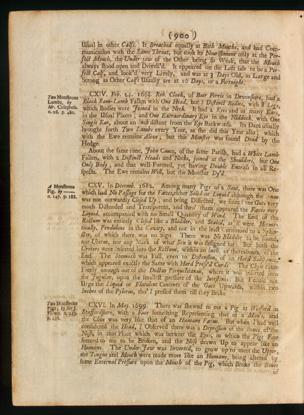 (900)
Usual in other Cases. It Breathed equally at Both Mouths, and had Com-
munication with the same Throat, but took its Nourishment only at the Per-
fect Mouth, the Under-Jaw of the Other being so Weak, that the Mouth
always stood open and Drivel'd. It appeared on the Left side to be a Per-
fect Calf, and look'd very Lively, and was at 3 Days Old, as Large and
Strong as Other Calfs Usually are at 10 Days, or a Fortnight.
Two Monstrous
Lambs, by
Mr. Colepress.
n. 26. p. 480.
CXIV. Feb. 24. 1668. Rich. Clark, of Beer Ferris in Devonshire, had a
Black Ram-Lamb Fallen with One Head, but 2 Distinct Bodies, with 8 Legs,
which Bodies were Joyned in the Neck. It had 2 Eyes and as many Ears,
in the Usual Places; and One Extraordinary Eye in the Niddock, with One
Single Ear, about an Inch distant from the Eye Backwards. Its Dam usually
brought forth Two Lambs every Year, as she did this Year also; which
with the Ewe remains Alive; but this Monster was found Dead by the
Hedge.
About the same time, John Cauce, of the same Parish, had a White Lamb
Fallen, with 2 Distinct Heads and Necks, joined at the Shoulders, but One
Only Body; and that well Formed, yet having Double Entrails in all Re-
spects. The Ewe remains Well, but the Monster Dy'd.
A Monstrous
Pig, by
n. 147. p. 188.
CXV. In Decemb. 1682. Among many Pigs of a Sow, there was One
which had No Passage for the
was not outwardly Closed Up; and being Dissected, we found the Guts very
much Distended and Transparent, and that there appeared the Faeces very
Liquid, accompanied with no Small Quantity of Wind. The End of the
Rectum was entirely Closed like a Bladder, and Sealed, as it were Hermeti-
cally, Pendulous in the Cavity, and not in the least Continued to a Sphin-
cter, of which there was no Sign. There was No Bladder to be found,
nor Uterus, nor any Mark of what Sex it was designed for. But both the
Ureters were inserted into the Rectum, within an Inch or thereabouts of the
End. The Stomach was Full, even to Distension, of
which appeared exactly the Same with
freely enough out of the Ductus Pecquetianus, where it was inserted into
the Jugular, upon the smallest pressure of the Intestines. But I could not
Urge the Liquid or Flatulent Contents of the Guts Upwards, within two
Inches of the Pylorus, tho' I pressed them till they Broke.
Two Monstrous
Pigs, by
CXVI. In May. 1699. There was shewed to me a Pig at Wolfall in
Staffordshire, with a Face something Representing that of a Man's, and
the Chin was very like that of an Humane Faetus. But when I had well
considered the Head, I Observed there was a Depression of the Bones of the
Nose, in that Place which was between the Eyes, in which the Pigs Face
seemed to me to be Broken, and the Nose drawn Up to appear like an
Humane. The Under-Jaw was Inverted, to grow up to meet the Upper,
the Tongue and Mouth were made more like an Humane, being altered by
some External Pressure upon the Mouth of the Pig, which Broke the Bones